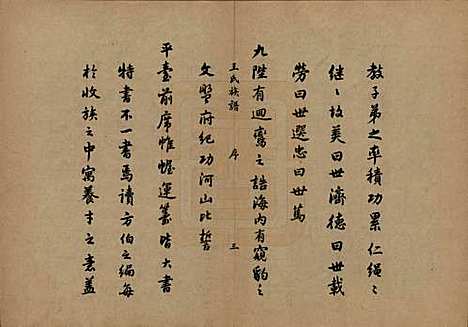 教子弟之率積功累仁繩〻
继〻故美曰世濟德曰世載
勞曰世選忠曰世篤
九陛有迴鸞之誥海内有窺豹之
王氏族譜 序 三
文墅府纪功河山比誓
平臺前席惟幄運籌皆大書
特書不一書焉讀方伯之編每
於收族之中寓養才之意盖